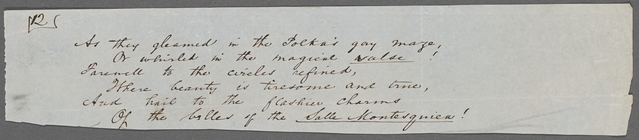 12
As they gleamed in the Polka's gay maze,
Or whirled in the magical valse!
Farewell to the circles refined,
Where beauty is tiresome and true,
And hail to the flashier charms
Of the belles of the Salle Montesquieu!